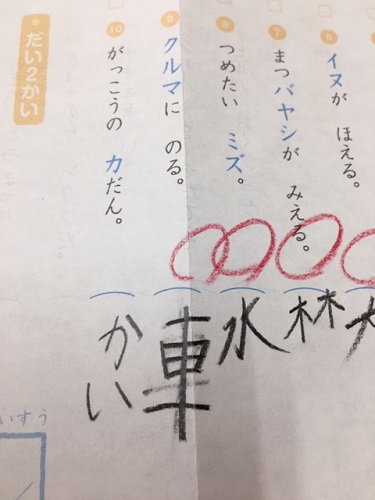 ⑥ イヌが ほえる。
⑦ まつバヤシが みえる。
⑧ つめたい ミズ。
⑨ クルマに のる。
⑩ がっこうの カだん。
林
水
車
かい
だい2かい
いすう